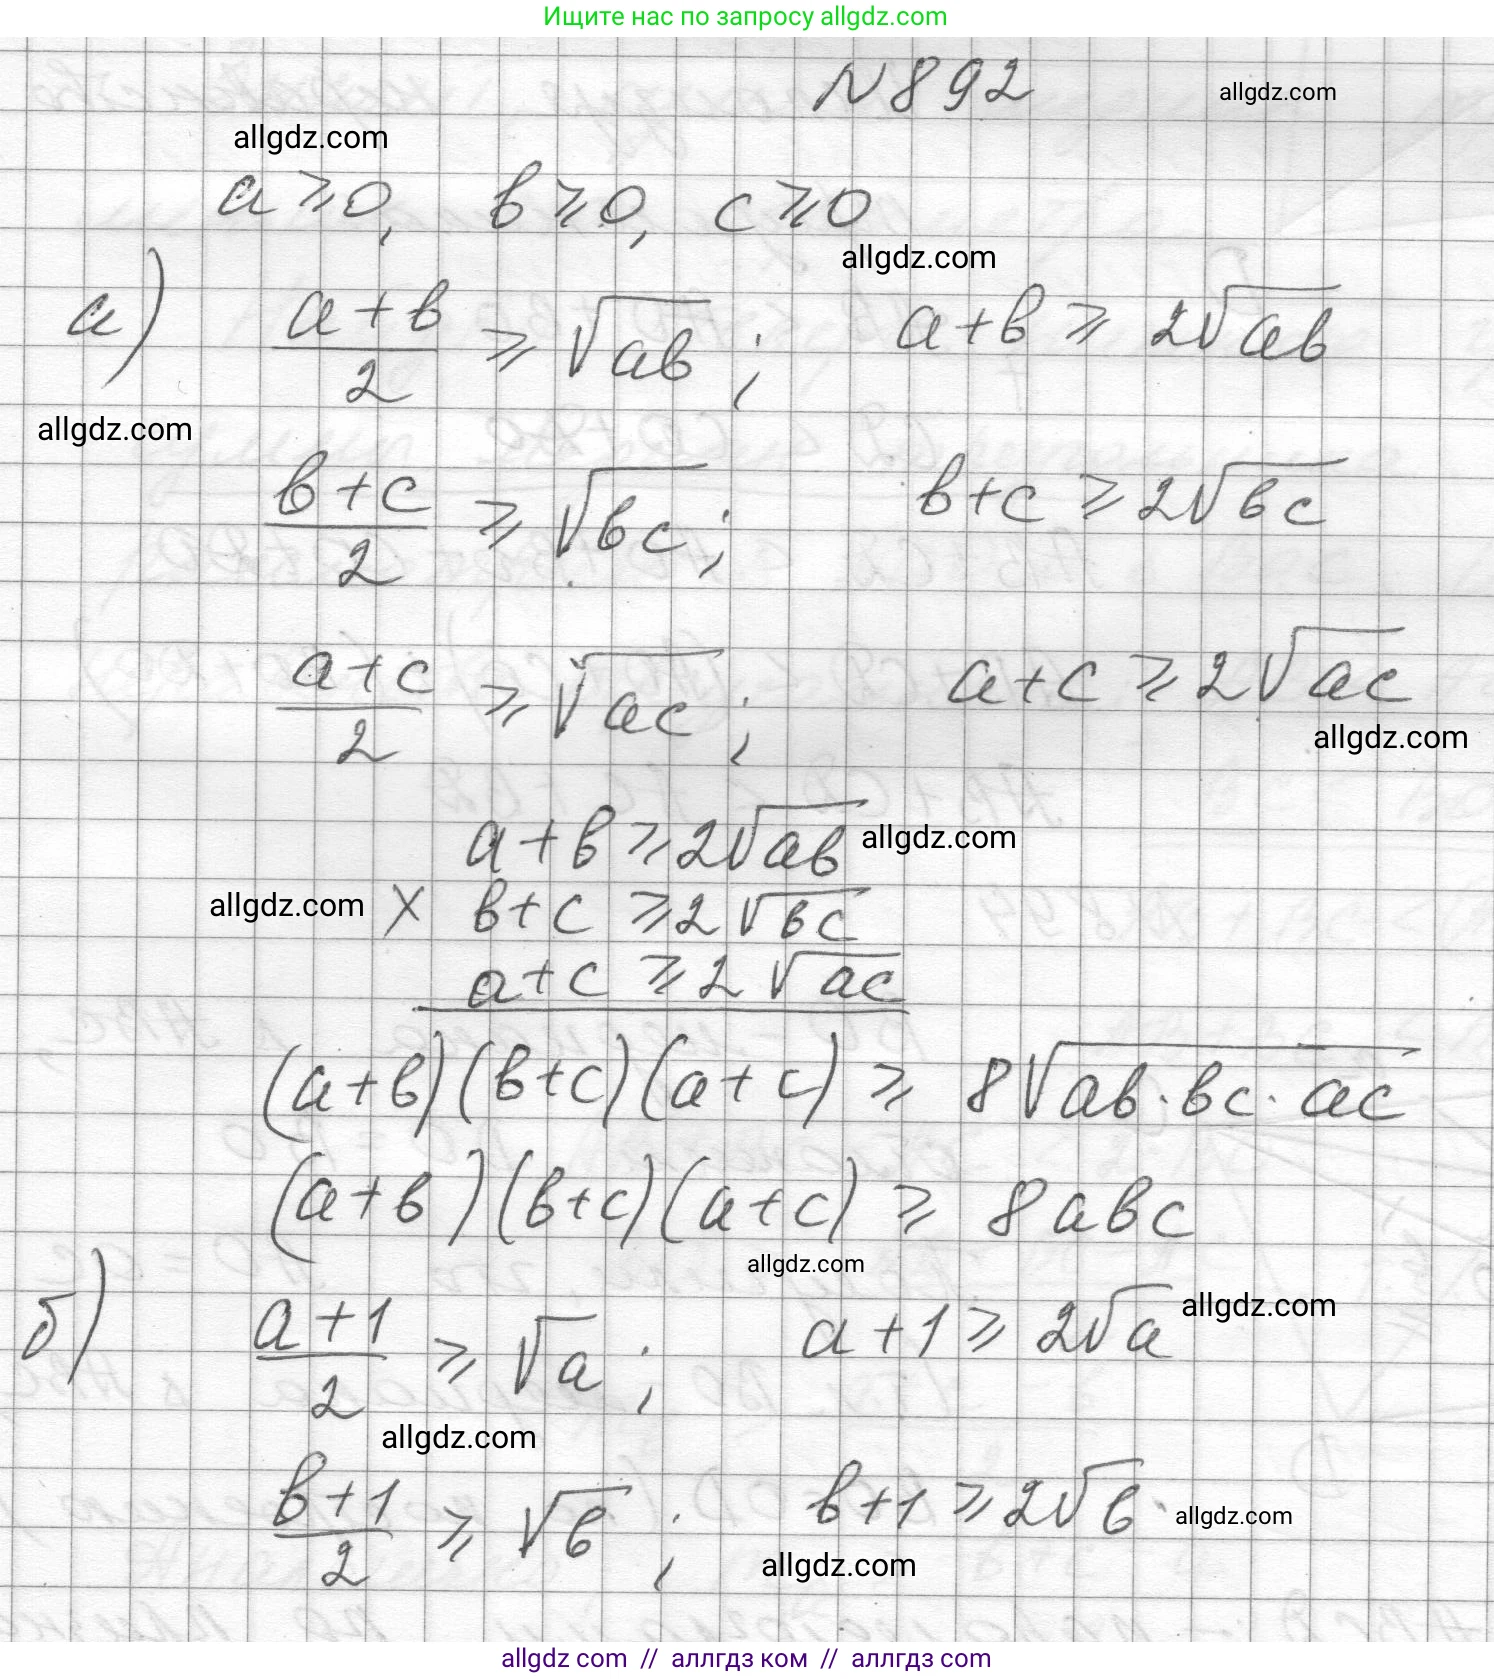 Ищите нас по запросу allgdz.com
N 892
allgdz.com
allgdz.com
a ⩾ 0, b ⩾ 0, c ⩾ 0
allgdz.com
а) (a+b)/2 ⩾ √ab; a+b ⩾ 2√ab
allgdz.com
(b+c)/2 ⩾ √bc; b+c ⩾ 2√bc
(a+c)/2 ⩾ √ac; a+c ⩾ 2√ac
allgdz.com
a+b ⩾ 2√ab allgdz.com
allgdz.com × b+c ⩾ 2√bc
a+c ⩾ 2√ac
(a+b)(b+c)(a+c) ⩾ 8√ab·bc·ac
(a+b)(b+c)(a+c) ⩾ 8abc
allgdz.com
б) (a+1)/2 ⩾ √a; a+1 ⩾ 2√a allgdz.com
allgdz.com
(b+1)/2 ⩾ √b; b+1 ⩾ 2√b allgdz.com
allgdz.com
allgdz com // аллгдз ком // аллгдз com